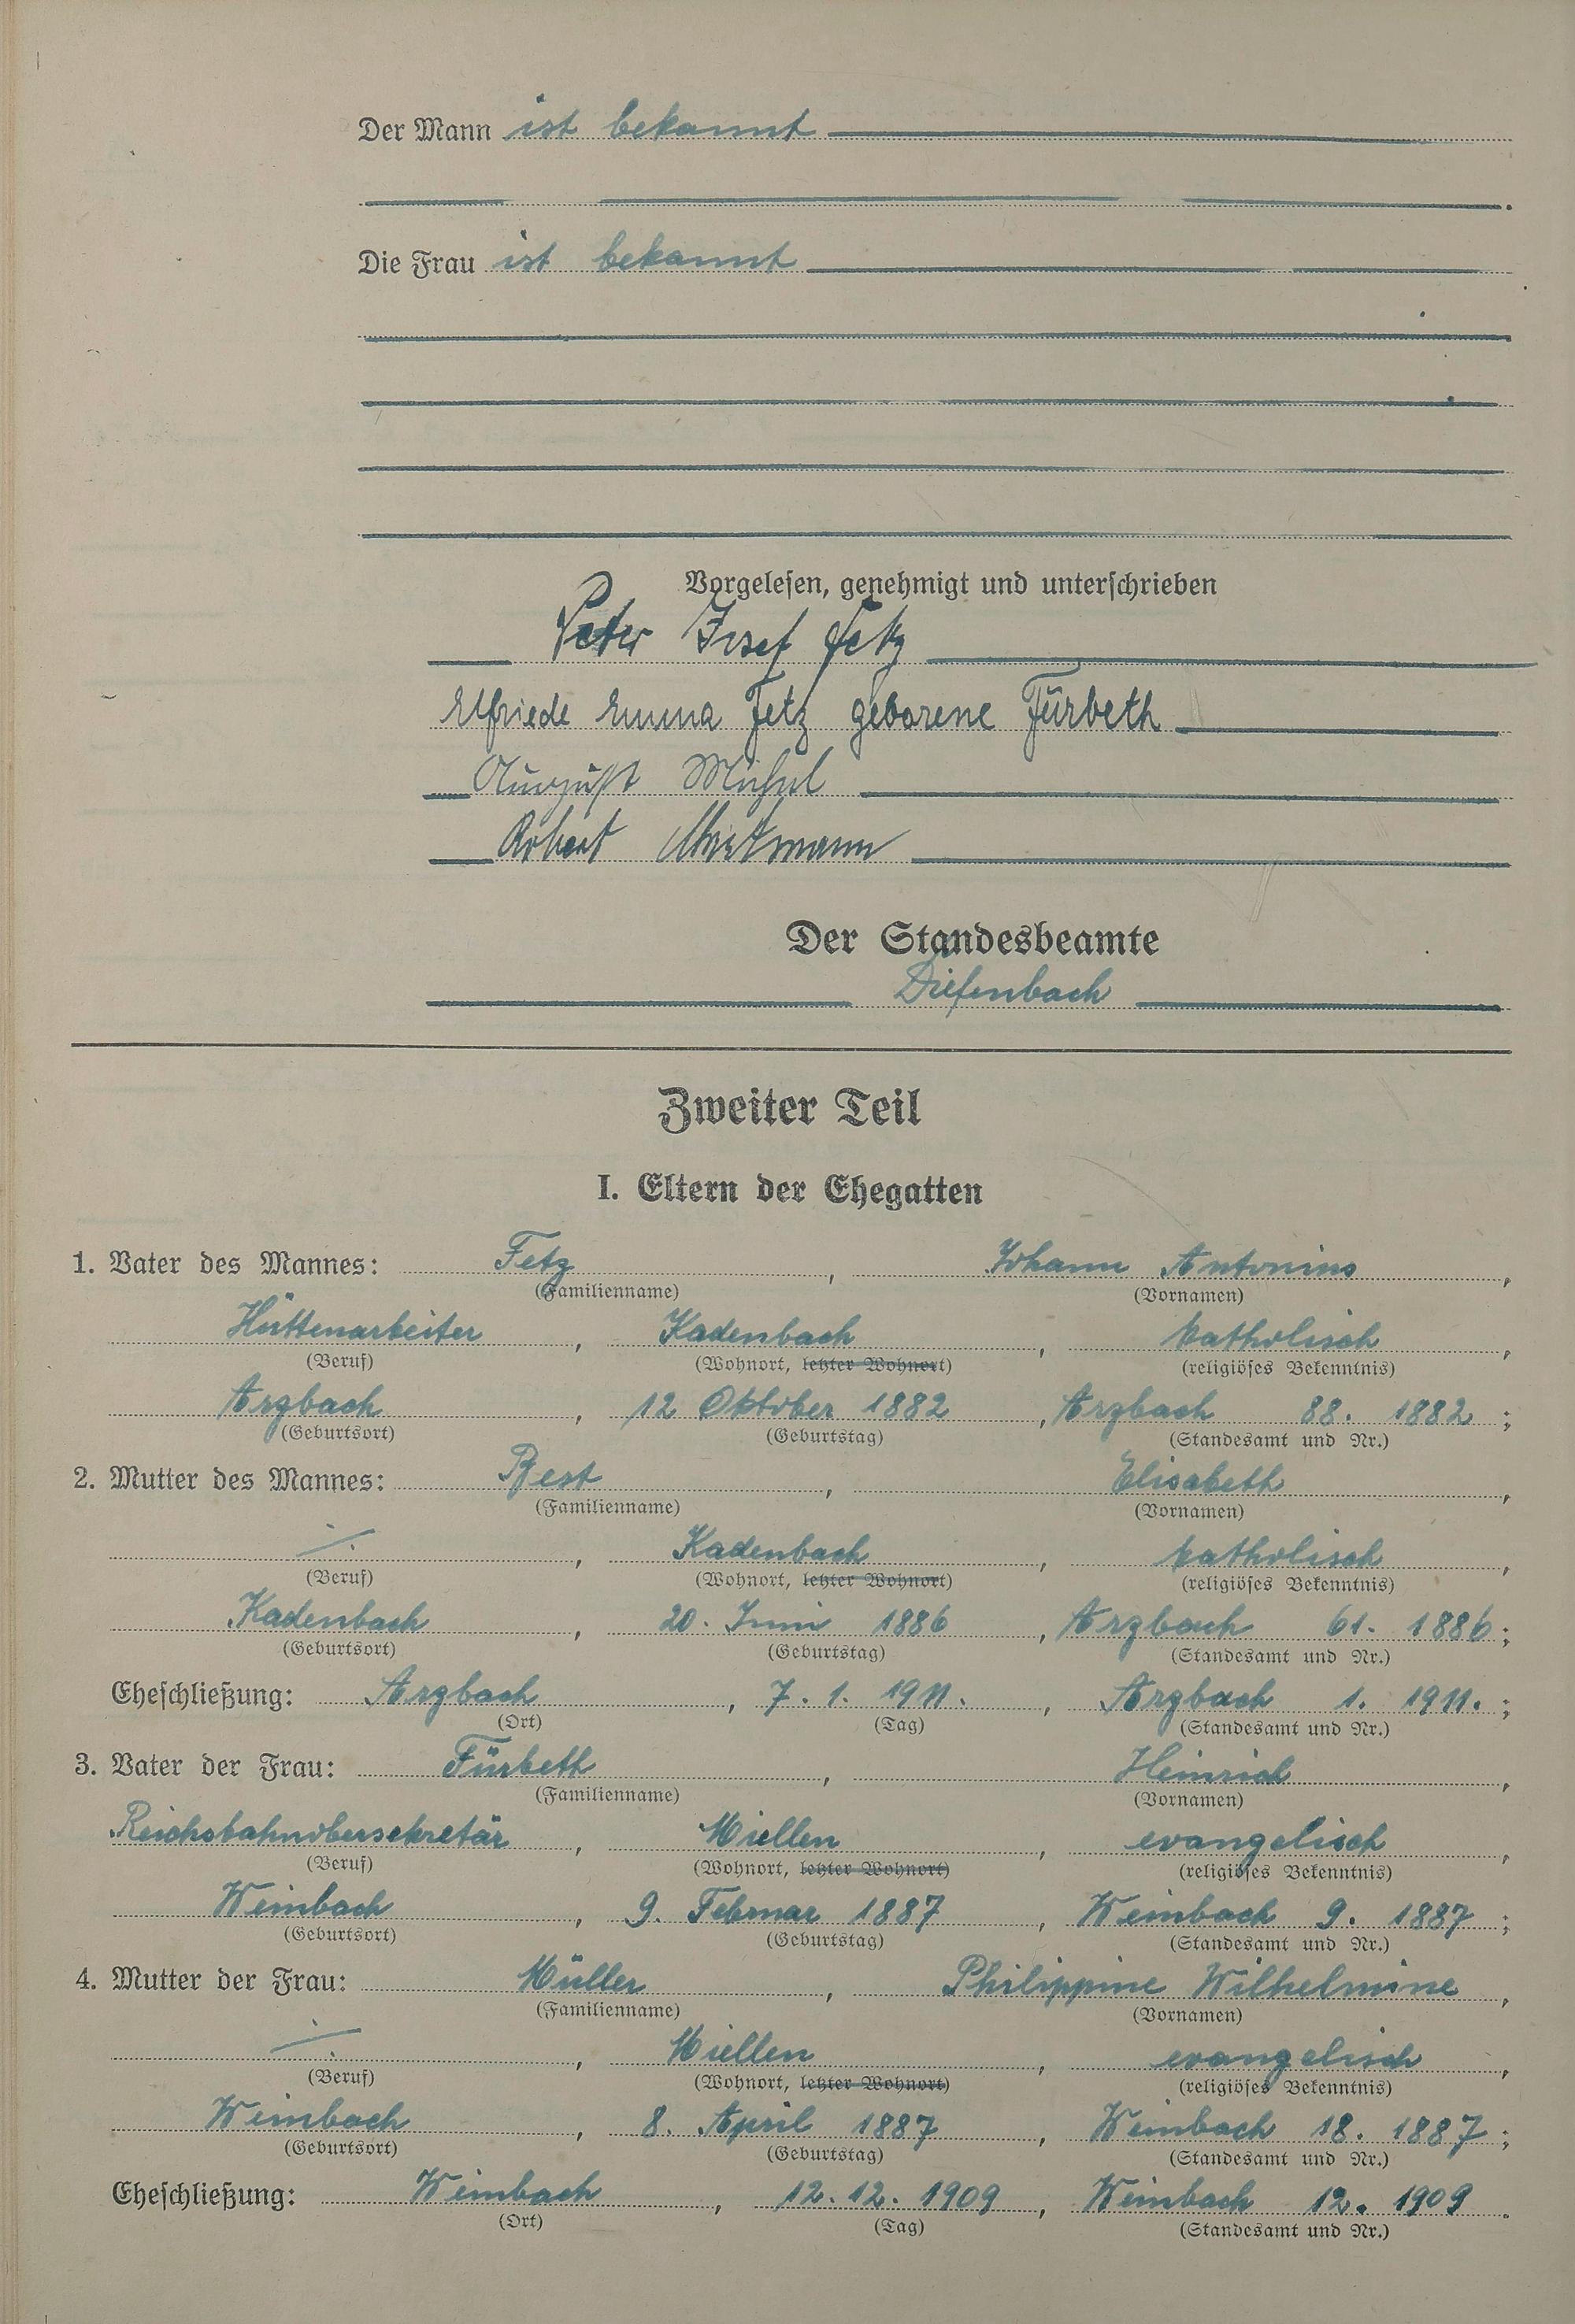 Der Mann ist bekannt
Die Frau ist bekannt
Vorgelesen, genehmigt und unterschrieben
Peter Josef Fetz
Elfriede Emma Fetz geborene Fürbeth
August Michel
Robert
Der Standesbeamte
Diefenbach
Zweiter Teil
I. Eltern der Ehegatten
1. Vater des Mannes: Fetz, Johann Antonius,
(Familienname) (Vornamen)
Hüttenarbeiter, Kadenbach, katholisch,
(Beruf) (Wohnort, letzter Wohnort) (religiöses Bekenntnis)
Arzbach, 12 Oktober 1882, Arzbach 88. 1882;
(Geburtsort) (Geburtstag) (Standesamt und Nr.)
2. Mutter des Mannes: Best, Elisabeth,
(Familienname) (Vornamen)
./., Kadenbach, katholisch,
(Beruf) (Wohnort, letzter Wohnort) (religiöses Bekenntnis)
Kadenbach, 20. Juni 1886, Arzbach 61. 1886;
(Geburtsort) (Geburtstag) (Standesamt und Nr.)
Eheschließung: Arzbach, 7. 1. 1911., Arzbach 1. 1911.;
(Ort) (Tag) (Standesamt und Nr.)
3. Vater der Frau: Fürbeth, Heinrich,
(Familienname) (Vornamen)
Reichsbahnobersekretär, Miellen, evangelisch,
(Beruf) (Wohnort, letzter Wohnort) (religiöses Bekenntnis)
Weinbach, 9. Februar 1887, Weinbach 9. 1887;
(Geburtsort) (Geburtstag) (Standesamt und Nr.)
4. Mutter der Frau: Müller, Philippine Wilhelmine,
(Familienname) (Vornamen)
./., Miellen, evangelisch,
(Beruf) (Wohnort, letzter Wohnort) (religiöses Bekenntnis)
Weinbach, 8. April 1887, Weinbach 18. 1887;
(Geburtsort) (Geburtstag) (Standesamt und Nr.)
Eheschließung: Weinbach, 12. 12. 1909, Weinbach 12. 1909.
(Ort) (Tag) (Standesamt und Nr.)